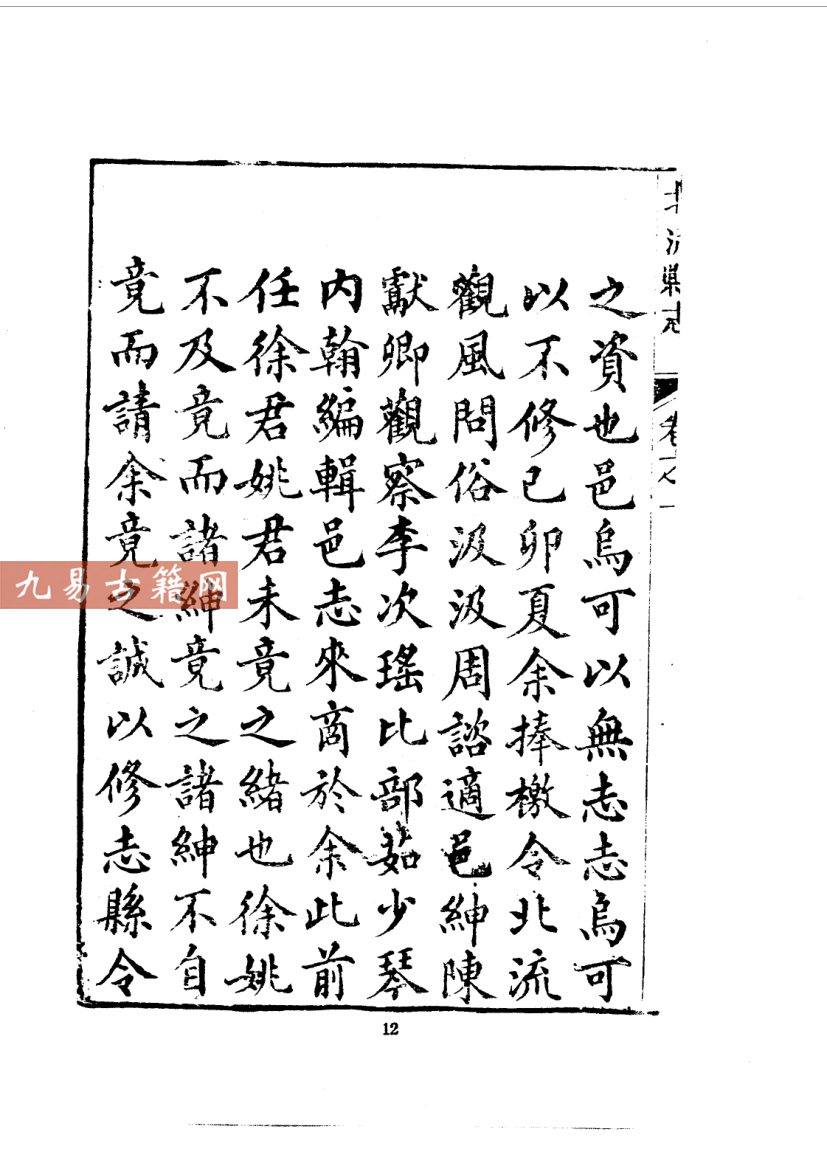 北流縣志
卷之一
之資也邑烏可以無志志烏可
以不修己卯夏余捧檄令北流
觀風問俗汲汲周諮適邑紳陳
獻卿觀察李次瑤比部茹少琴
內翰編輯邑志來商於余此前
任徐君姚君未竟之緒也徐姚
不及竟而諸紳竟之諸紳不自
竟而請余竟之誠以修志縣令
九易古籍网
12